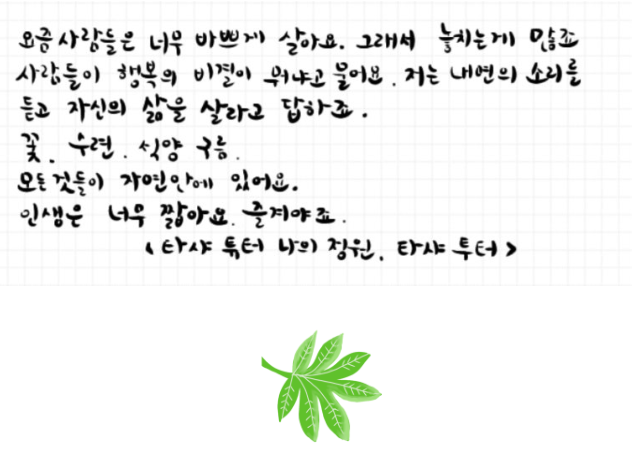 요즘 사람들은 너무 바쁘게 살아요. 그래서 놓치는게 많죠
사람들이 행복의 비결이 뭐냐고 물어요. 저는 내면의 소리를
듣고 자신의 삶을 살라고 답하죠.
꽃. 수련. 석양 구름.
모든 것들이 자연안에 있어요.
인생은 너무 짧아요. 즐겨야죠.
<타샤 튜터 나의 정원, 타샤 투터>